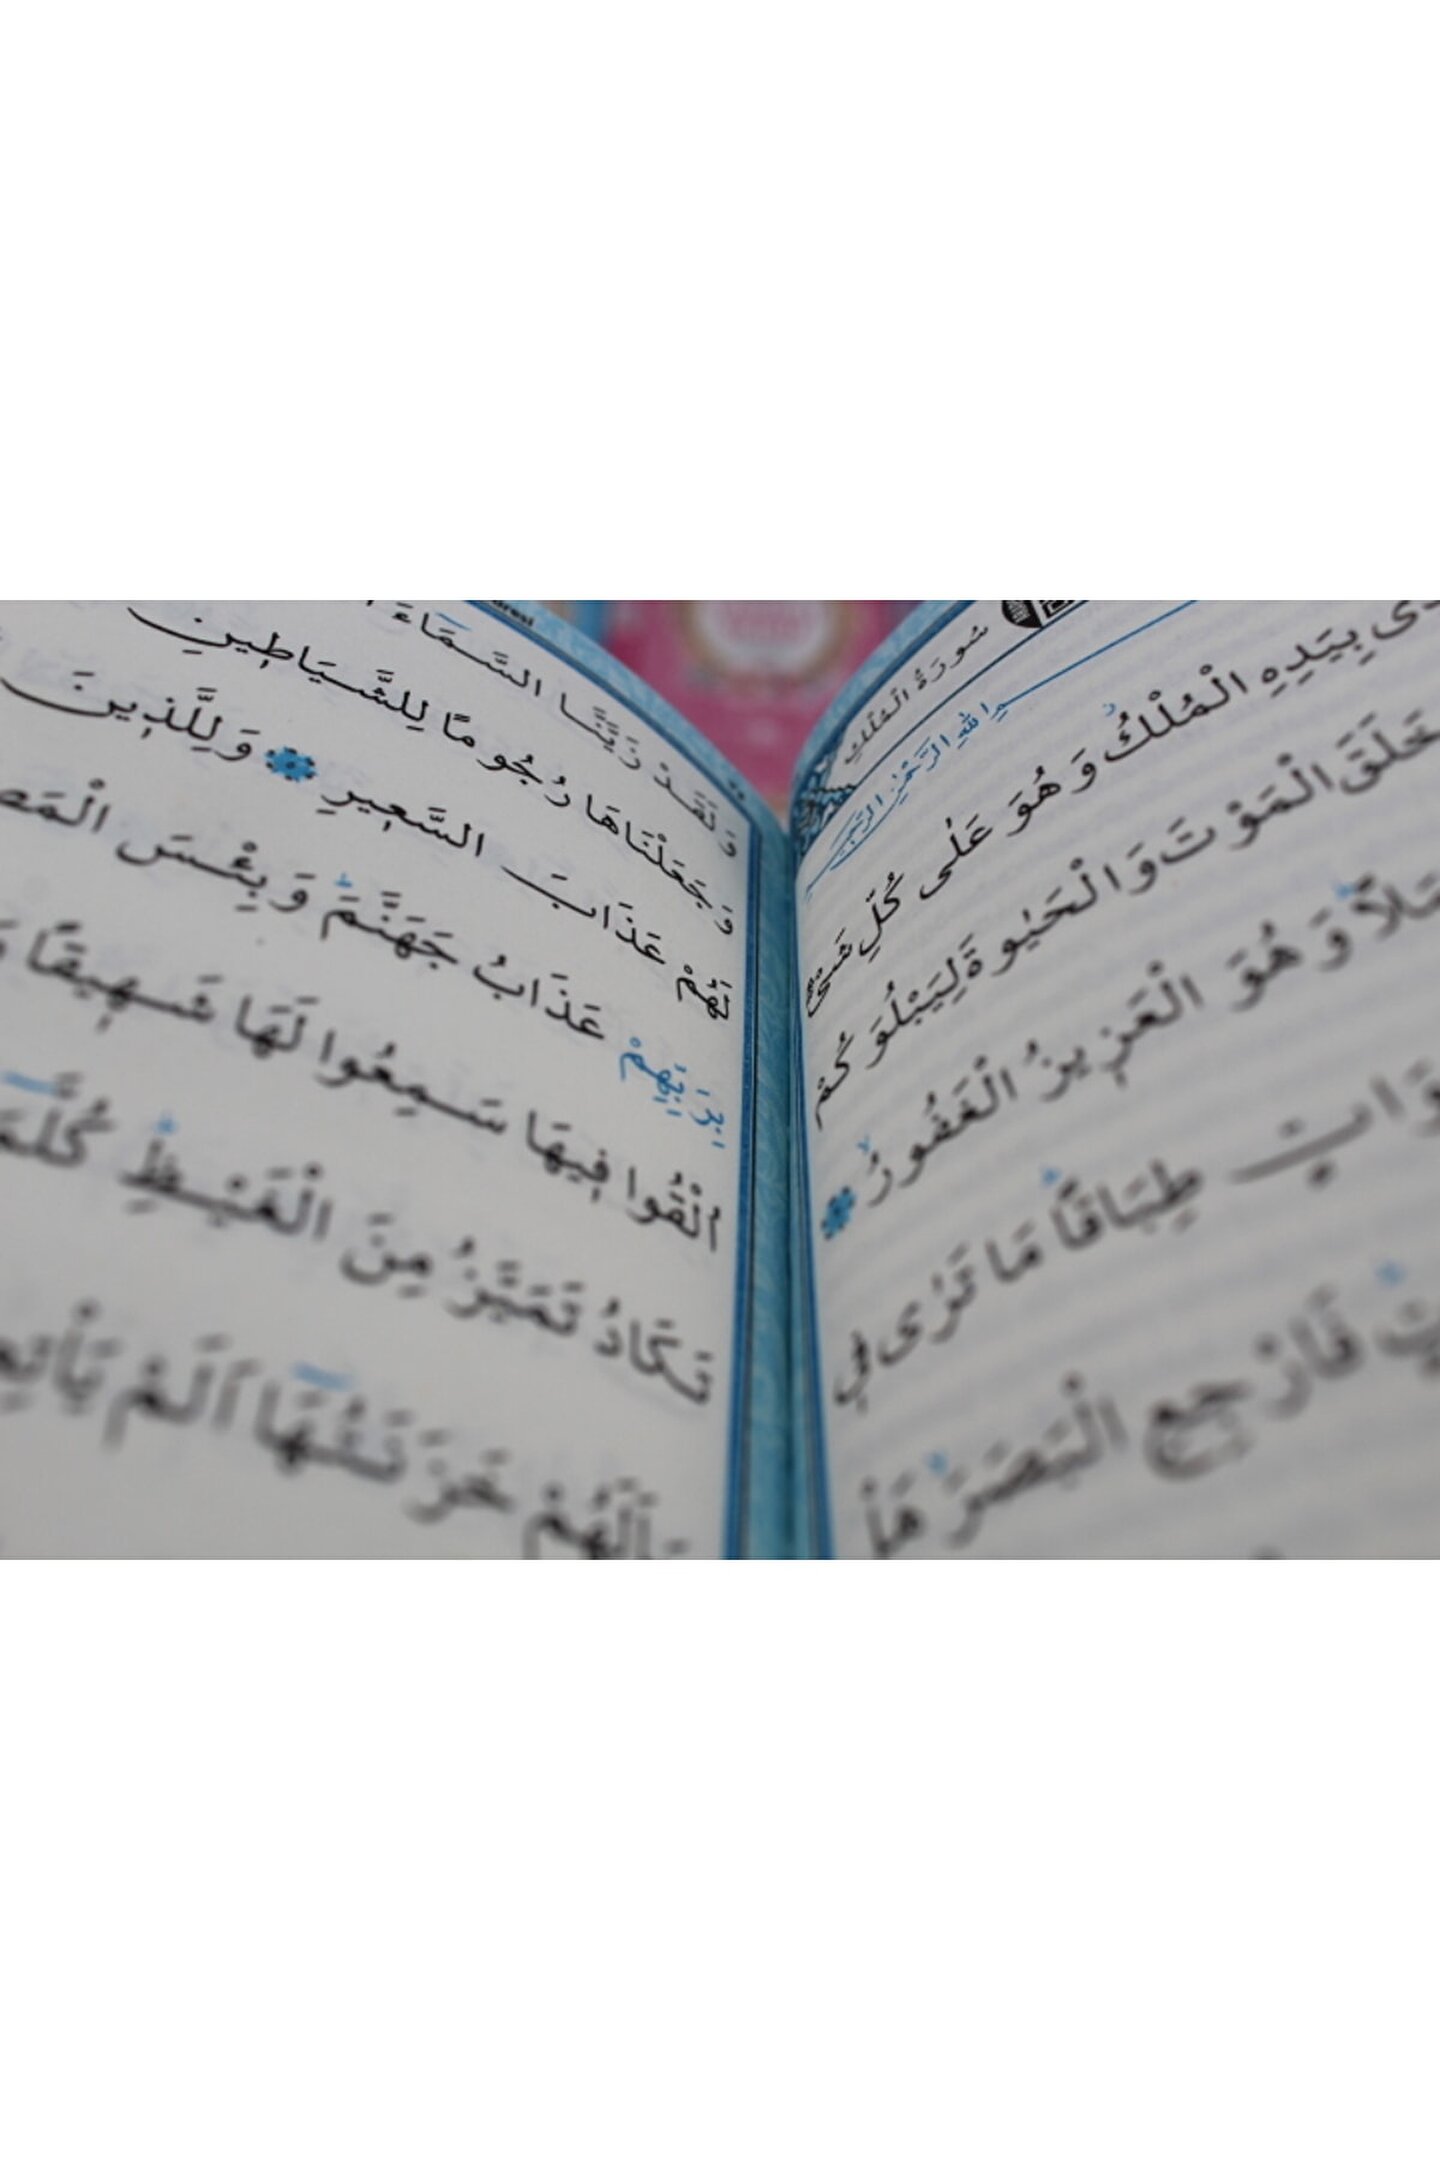 سُورَةُ الْمُلْكِ
اللهِ الرَّحْمٰنِ الرَّحِيمِ
بِيَدِهِ الْمُلْكُ وَهُوَ عَلٰى كُلِّ شَيْءٍ
خَلَقَ الْمَوْتَ وَالْحَيٰوةَ لِيَبْلُوَكُمْ
وَهُوَ الْعَزِيزُ الْغَفُورُ
طِبَاقًا مَا تَرٰى فِي
فَارْجِعِ الْبَصَرَ هَلْ
وَلَقَدْ زَيَّنَّا السَّمَاءَ
وَجَعَلْنَاهَا رُجُومًا لِلشَّيَاطِينِ
عَذَابَ السَّعِيرِ وَلِلَّذِينَ
عَذَابُ جَهَنَّمَ وَبِئْسَ
اُلْقُوا فِيهَا سَمِعُوا لَهَا شَهِيقًا
تَكَادُ تَمَيَّزُ مِنَ الْغَيْظِ كُلَّمَا
خَزَنَتُهَا اَلَمْ